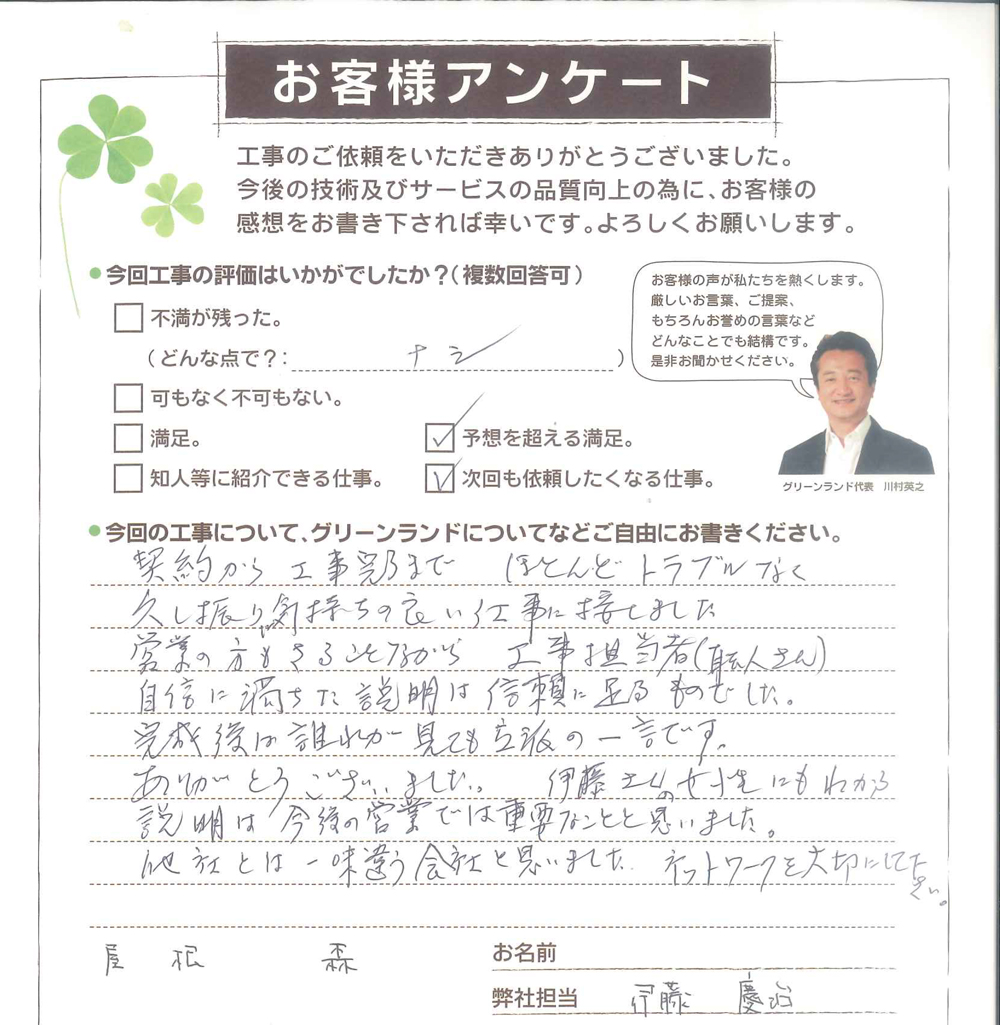 お客様アンケート
工事のご依頼をいただきありがとうございました。
今後の技術及びサービスの品質向上の為に、お客様の
感想をお書き下されば幸いです。よろしくお願いします。
●今回工事の評価はいかがでしたか？（複数回答可）
不満が残った。
（どんな点で？：ナシ）
可もなく不可もない。
満足。
予想を超える満足。
知人等に紹介できる仕事。
次回も依頼したくなる仕事。
お客様の声が私たちを熱くします。
厳しいお言葉、ご提案、
もちろんお誉めの言葉など
どんなことでも結構です。
是非お聞かせください。
グリーンランド代表　川村英之
●今回の工事について、グリーンランドについてなどご自由にお書きください。
契約から 工事完了まで ほとんどトラブルなく
久し振り気持ちの良い仕事に接しました
営業の方もさることながら 工事担当者(職人さん)
自信に満ちた説明は信頼に足るものでした。
完成後は誰れが見ても立派の一言です。
ありがとうございました。 伊藤さんの女性にもわかる
説明は今後の営業では重要なことと思いました。
他社とは一味違う会社と思いました. ネットワークを大切にして下さい。
屋根 森
お名前
弊社担当 伊藤 慶治